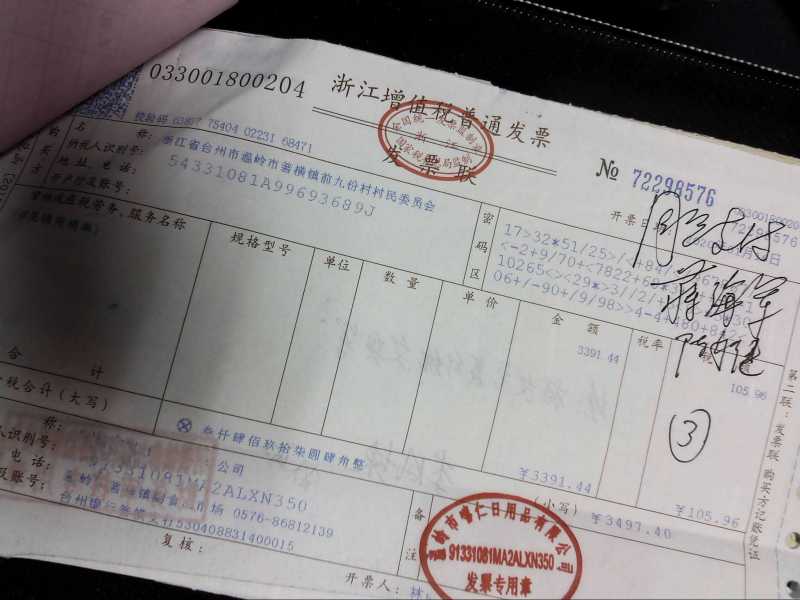 033001800204
浙江增值税普通发票
发票联
校验码 63807 75404 02231 68471
№ 72298576
033001800204
72298576
开票日期
名 称:
浙江省台州市温岭市箬横镇前九份村村民委员会
纳税人识别号:
54331081A99693689J
地址、电话:
开户行及账号:
密码区
17>32*51/25>/<+84/
<-2+9/70+<7822+6
10265<><29*>3//2/+
06+/-90+/9/98>>4-4+480+8
货物或应税劳务、服务名称
规格型号
单位
数量
单价
金额
税率
税额
3391.44
105.96
合计
¥3391.44
¥105.96
价税合计(大写)
叁仟肆佰玖拾柒圆肆角整
(小写)
¥3497.40
③
称:
公司
人识别号:
91331081MA2ALXN350
电话:
0576-86812139
及账号:
530408831400015
备注
温岭市
仁日用品有限公司
91331081MA2ALXN350
发票专用章
复核:
开票人:
第二联:发票联 购买方记账凭证